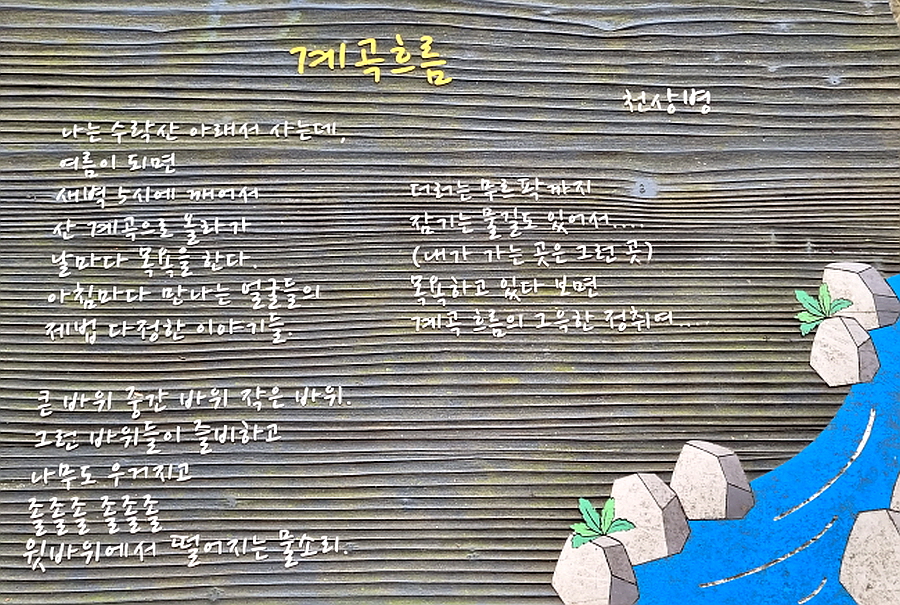 계곡흐름
천상병
나는 수락산 아래서 사는데,
여름이 되면
새벽 5시에 깨어서
산 계곡으로 올라가
날마다 목욕을 한다.
아침마다 만나는 얼굴들의
제법 다정한 이야기들.
큰 바위 중간 바위 작은 바위.
그런 바위들이 즐비하고
나무도 우거지고
졸졸졸 졸졸졸
윗바위에서 떨어지는 물소리.
더러는 무르팍까지
잠기는 물길도 있어서....
(내가 가는 곳은 그런 곳)
목욕하고 있다 보면
계곡 흐름의 그윽한 정취여....